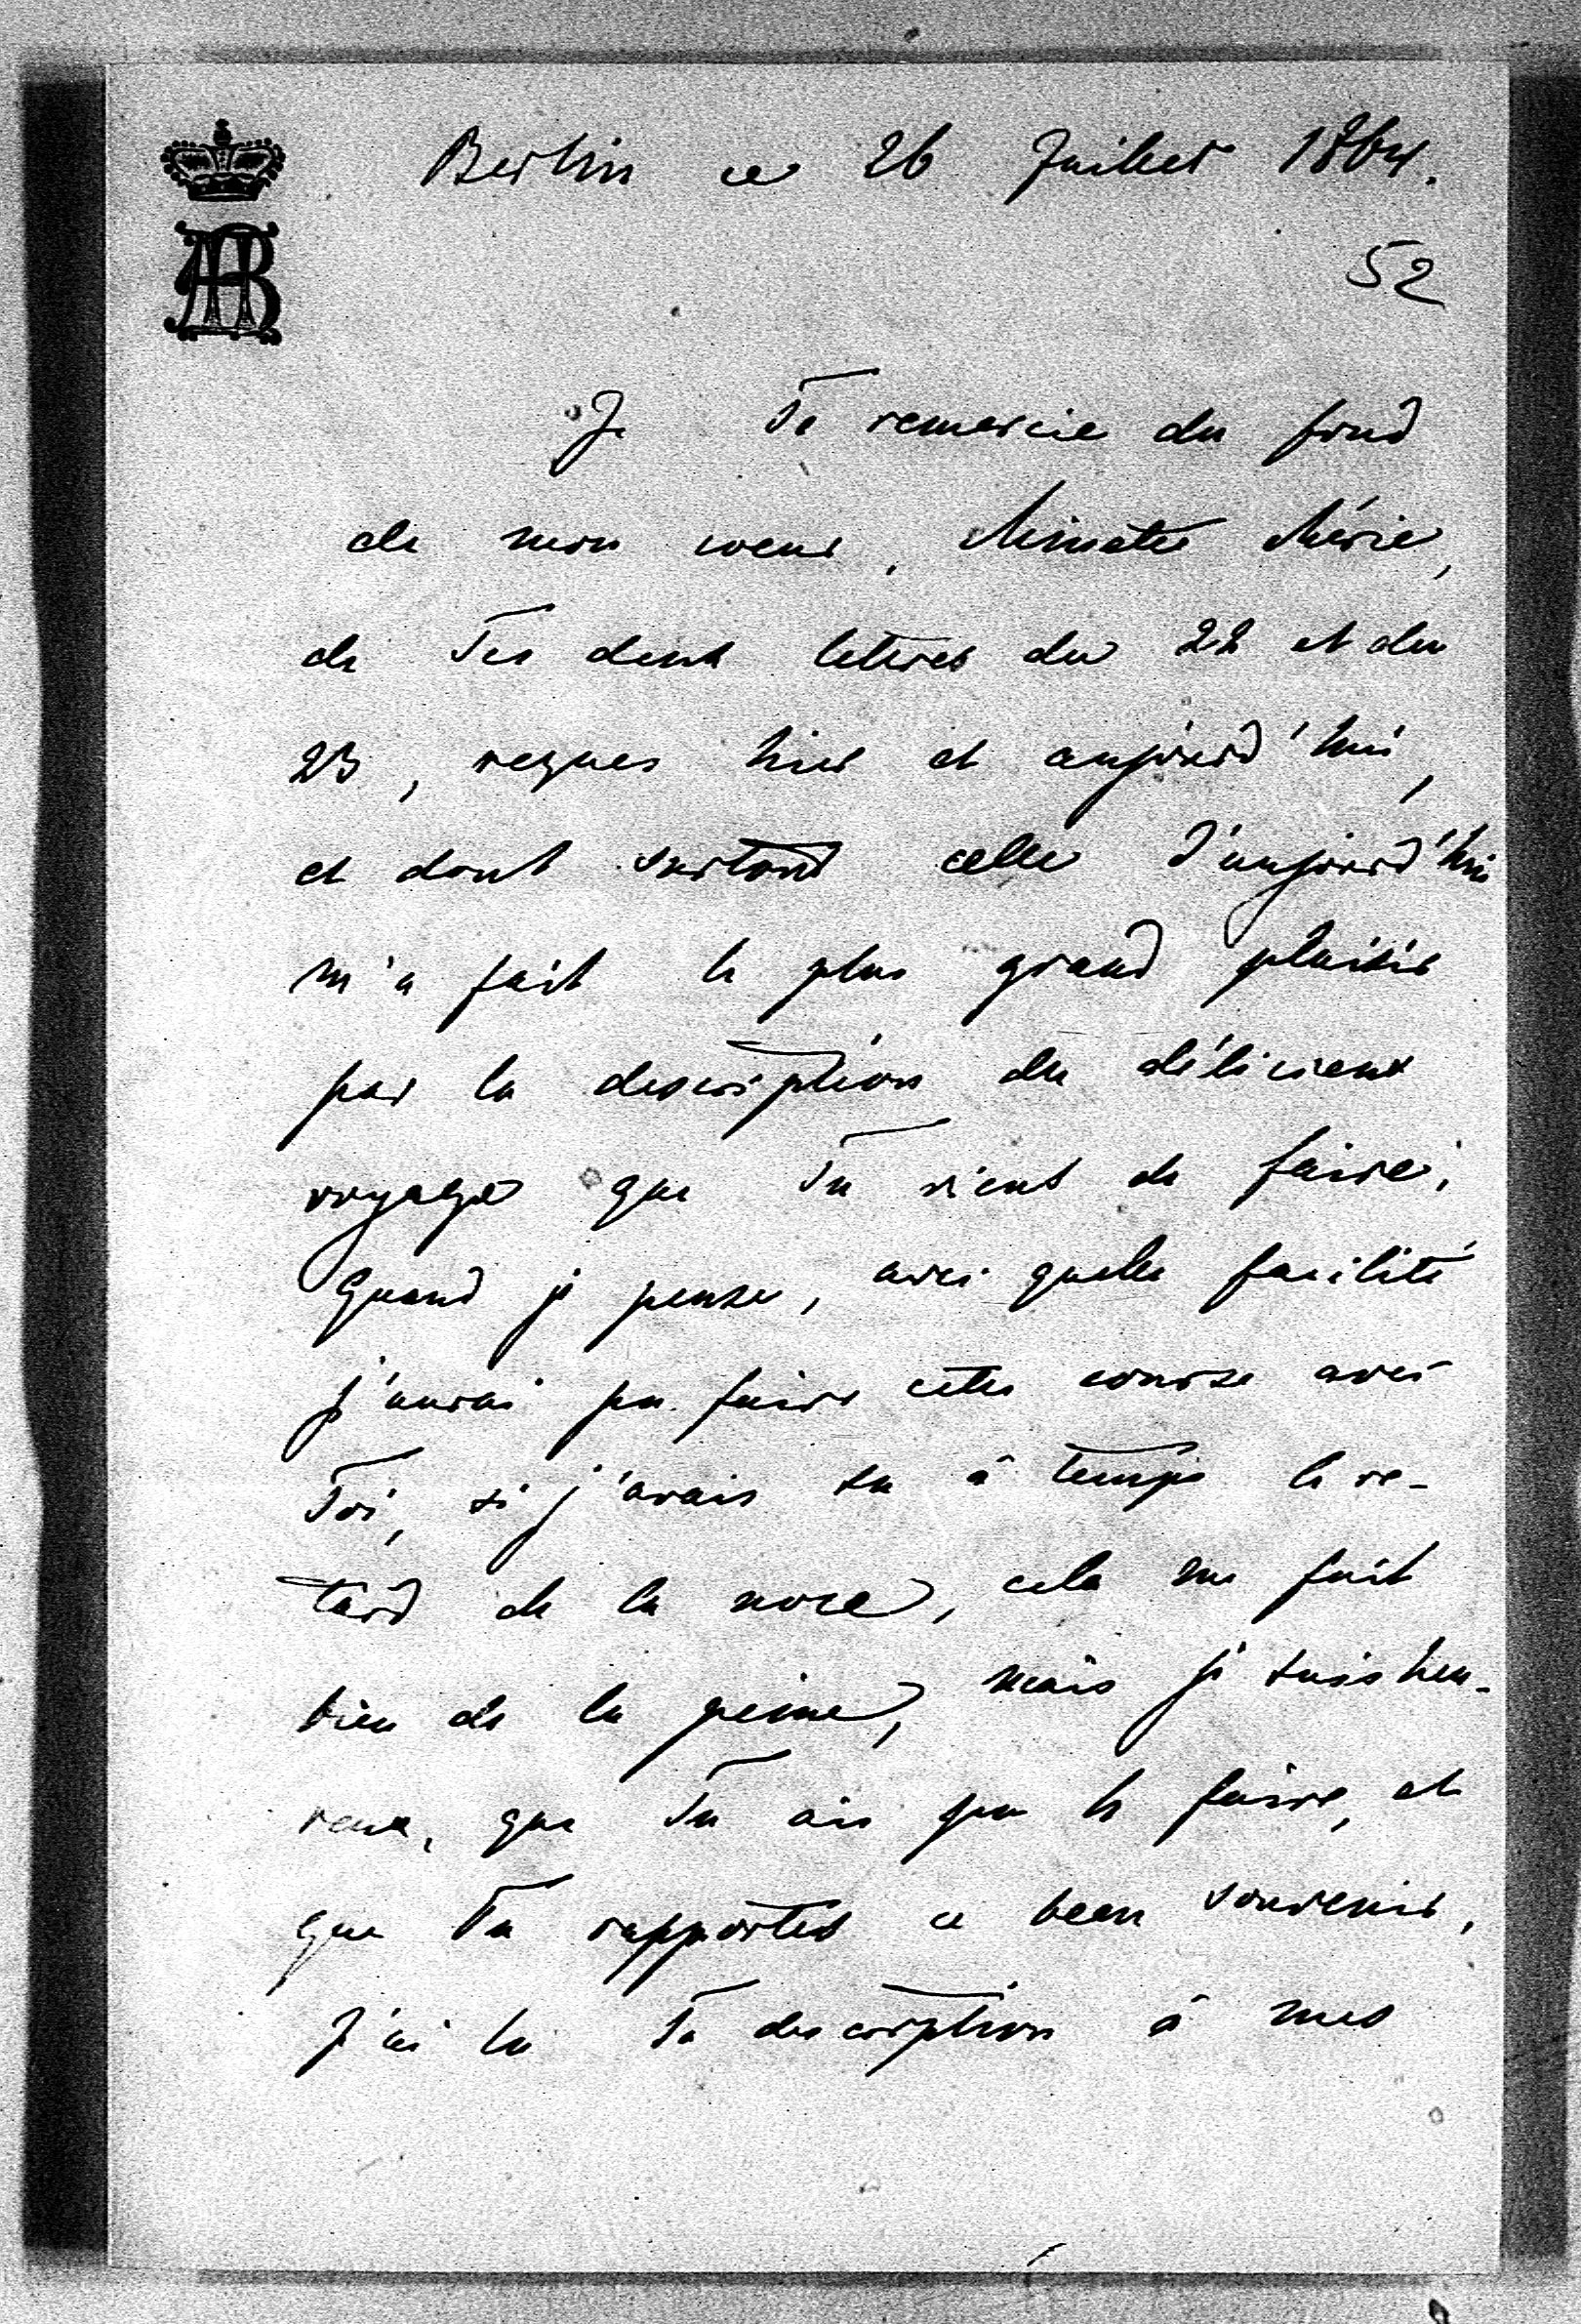 Berlin ce 26 Juillet 1864.
52
Je Te remercie du fond
de mon coeur, Minette chérie,
de Tes deux lettres du 22 et du
23, reçues hier et aujourd'hui,
et dont surtout celle d'aujourd'hui
m'a fait le plus grand plaisir
par la description du délicieux
voyage que Tu viens de faire;
Quand je pense, avec quelle facilité
j'aurai pu faire cette course avec
Toi, si j'avais su à temps le re-
tard de la noce, cela me fait
bien de la peine, mais je suis heu-
reux, que Tu ais pu le faire, et
que Tu rapportes ce beau souvenir.
J'ai lu Ta description à mes